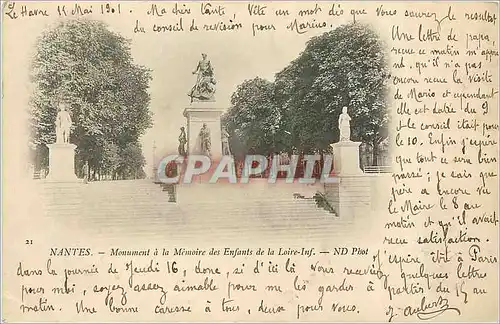 Le Havre 11 Mai 1901. Ma chère tante, Vite un mot dès que vous saurez le resultat
du conseil de revision pour Marius.
Une lettre de papa,
recue ce matin m'apprend
qu'il n'a pas
encore recue la visite
de Mario et cependant
elle est datée du 9
et le conseil était pour
le 10. Enfin j'espère
que tout ce sera bien
passé; je sais que
père a encore vu
le Maire le 8 au
matin et qu'il avait
recue satisfaction.
J'espère être à Paris
CPA-PHIL.COM
21
NANTES. — Monument à la Mémoire des Enfants de la Loire-Inf. — ND Phot
dans la journée de Jeudi 16, donc, si d'ici là vous recevez quelques lettres
pour moi, soyez assez aimable pour me les garder à partir du 15 au
matin. Une bonne caresse à tous, deux pour vous.
J. Aubert